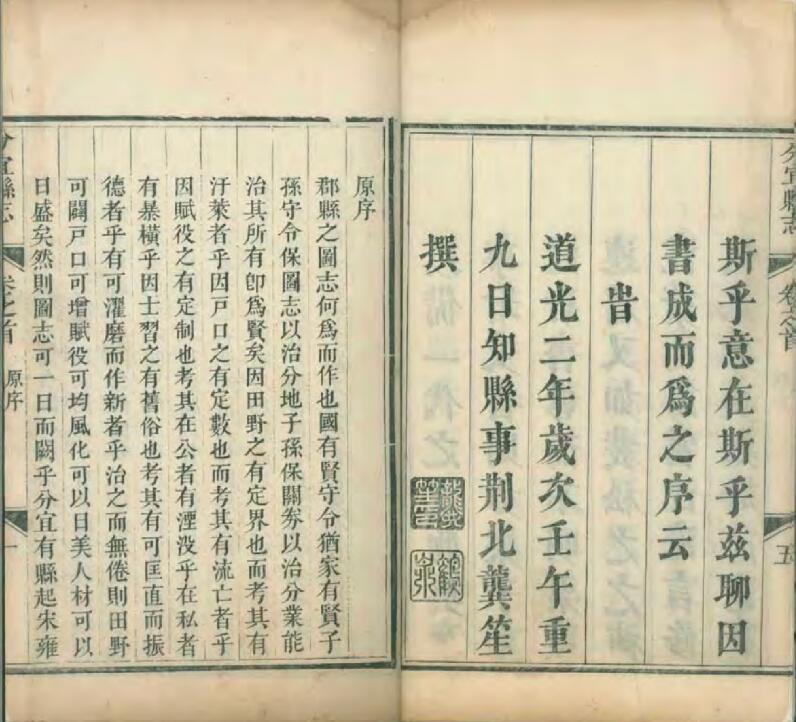 分宜縣志
卷之首
五
斯乎意在斯乎茲聊因
書成而爲之序云
旹
道光二年歲次壬午重
九日知縣事荆北龔笙
撰
原序
郡縣之圖志何爲而作也國有賢守令猶家有賢子
孫守令保圖志以治分地子孫保關劵以治分業能
治其所有卽爲賢矣因田野之有定界也而考其有
汙萊者乎因戸口之有定數也而考其有流亡者乎
因賦役之有定制也考其在公者有湮没乎在私者
有暴橫乎因士習之有舊俗也考其有可匡直而振
德者乎有可濯磨而作新者乎治之而無倦則田野
可闢戸口可增賦役可均風化可以日美人材可以
日盛矣然則圖志可一日而闕乎分宜有縣起宋雍
分宜縣志
卷之首
原序
一